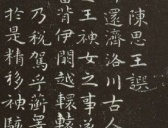 陳思王譔
還濟洛川古人
王神女之事遂
背伊闕越轘轅
乃稅駕乎蘅皋
於是精移神駭